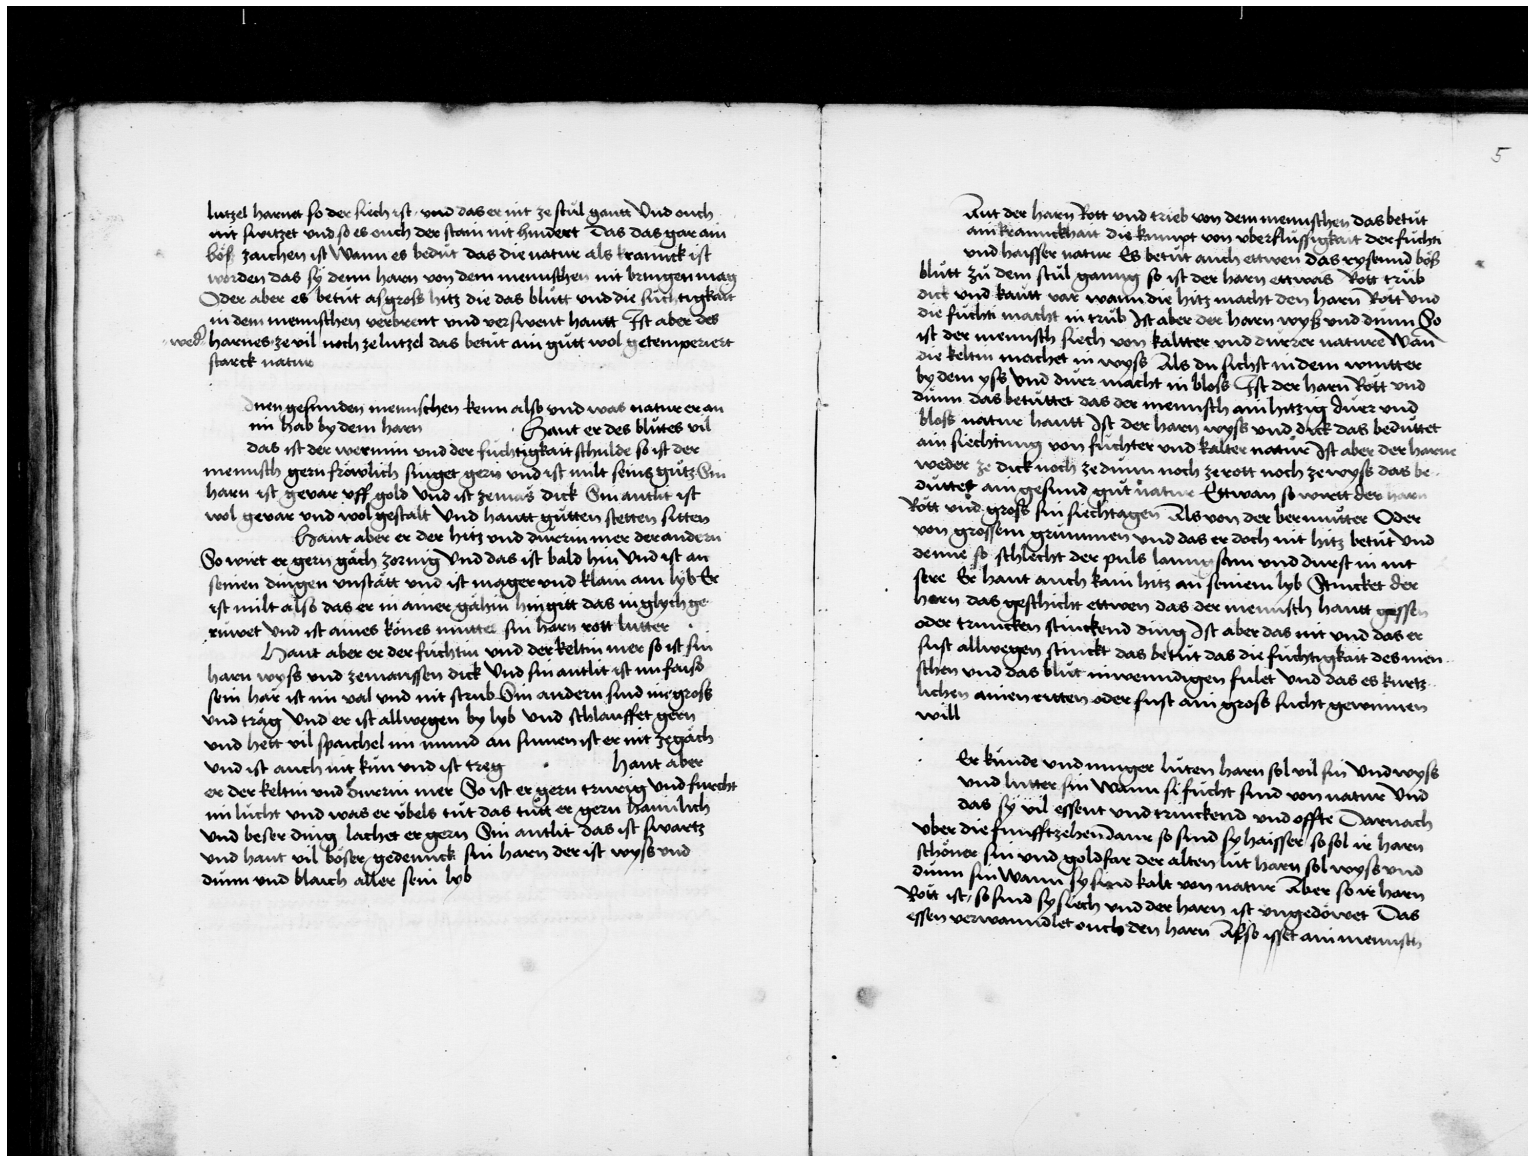 lutzel harnet so der siech ist und das er nit ze stůl gautt Und ouch
nit switzet und so es ouch der stain nit hindert Das das gar ain
böß zaichen ist Wann es bedüt das die natur als kranick ist
worden das sy denn harn von dem mennschen nit bringen mag
Oder aber es betüt als gross hitz die das blůtt und die füchtigkait
in dem mennschen verbrent und verswent hautt Ist aber des
wed' harnes ze vil noch ze lutzel das betüt ain gůtt wol getemperiert
starck natur
nen gesunden mennschen kenn also und was natur er an
im hab by dem harn Haut er des blůttes vil
das ist der wermin und der füchtigkait schulde so ist der
mennsch gern frowlich singet gern und ist milt seins gůtz Sin
harn ist gevar uff gold Und ist zemas dick Sin antlit ist
wol gevar und wol gestalt Und hautt gůtten stetten sitten
Haut aber er der hitz und duerin mer der andern
So wirt er gern gäch zornig Und das ist bald hin Und ist an
seinen dingen unstätt und ist mager und klain am lyb Er
ist milt also das er in ainer gähin hin gitt das in glych ge
ruwet Und ist aines könes můttes sin harn rott lutter
Haut aber er der füchtin und der keltin mer so ist sin
harn wyss und zemaussen dick Und sin antlit ist im faisd
sein har ist im val und nit strub Sin andern sind im gross
und träg Und er ist allwegen by lyb Und schlauffet gern
und hett vil spaichel im mund an sinnen ist er nit ze gäch
und ist auch nit kün und ist treg Haut aber
er der keltin und duerrin mer So ist er gern trurig Und furcht
im lücht und was er übels tůt das tůtt er gern haimlich
und beser ding lachet er gern Sin antlit das ist swartz
und haut vil böser gedennck sin harn der ist wyss und
dünn und blaich aller sein lyb
5
Aut der harn Rott und trieb von dem mennschen das betüt
ain krannckhait die kumpt von überflüssigkait der füchti
und haisser natur Es betüt auch ettwen das rysennd böß
blůtt zů dem stůl ganng so ist der harn ettwas Rott trüb
dick und kautt var wann die hitz macht den harn Rott und
die füchti macht in trüb Ist aber der harn wyß und dünn So
ist der mennsch siech von kaltter und dürrer nature Wan
die keltin machet in wyss Als du sichst in dem wintter
by dem yss Und dürr macht in bloss Ist der harn Rott und
dünn das betüttet das der mennsch ain hitzig dürr und
bloss natur hautt Ist der harn wyss und dick das bedüttet
ain siechtung von füchter und kalter natur Ist aber der harne
weder ze dick noch ze dünn noch ze rott noch ze wyss das be
düttet ain gesund gůt natur Ettwan so wirtt der harn
Rott und gross sin siechtagen Als von der bermůtter Oder
von grossem grimmen und das er doch nit hitz betüt Und
denne so schlecht der puls lanngsam und durst in nit
sere Er haut auch kain hitz an seinem lyb Stincket der
harn das geschicht ettwen das der mennsch hautt gessen
oder truncken stinckend ding Ist aber das nit und das er
sust allwegen stinckt das betüt das die füchtigkait des men
schen und das blůt inwenndigen fulet Und das es kurtz
lichen ainen ritten oder sust ain gross sucht gewinnen
will
Er kinde und junger lüten harn sol vil sin Und wyss
und lutter sin Wann si fücht sind von natur Und
das sy vil essent und trinckend und offte Darnach
über die funfftzehen Jaur so sind sy haisser so sol ir harn
schöner sin und goldfar der alten lüt harn sol wyss und
dünn sin Wann sy sind kalt von natur Aber so ir harn
Rott ist so sind sy siech und der harn ist ungedöwet Das
essen verwanndlet ouch den harn Also isset ain mennsch